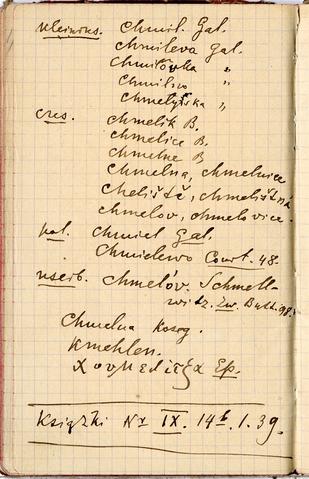 kleinrus. Chmil. Gal.
Chmileva Gal.
Chmilovka "
Chmilno "
Chmelyska "
čres. Chmelik B.
Chmelice B.
Chmelne B
Chmelna, Chmelnice
Cheliště, Chmelištná
Chmelov, Chmelovice.
pol. Chmiel Gal.
Chmielewo Court. 48.
nserb. Chmelov. Schmell-
witz. Zw. Butt. 98.
Chmelna Kosog.
Kmehlen.
Χουμελίτζα Ep.
Książki Nr IX. 14 b. 1. 39.